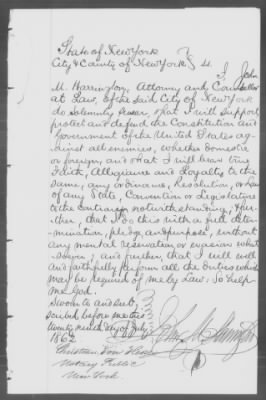 State of New York
City & County of New York } ss.
I, John
M. Harrington, Attorney and Counsellor
at Law, of the said City of New York
do solemnly swear, that I will support
protect and defend the Constitution and
Government of the United States ag-
ainst all enemies, whether domestic
or foreign, and that I will bear true
Faith, Allegiance and Loyalty to the
same, any ordinance, Resolution, or Law
of any State, Convention or Legislature
to the Contrary notwithstanding; Fur-
ther, that I do this with a full deter-
mination, pledge and purpose, without
any mental reservation or evasion what
soever; and further, that I will well
and faithfully perform all the Duties which
may be required of me by Law. So help
me God.
Sworn to and sub-
scribed before me this
twenty ninth day of July
1862
John M. Harrington
Notary Public
New York